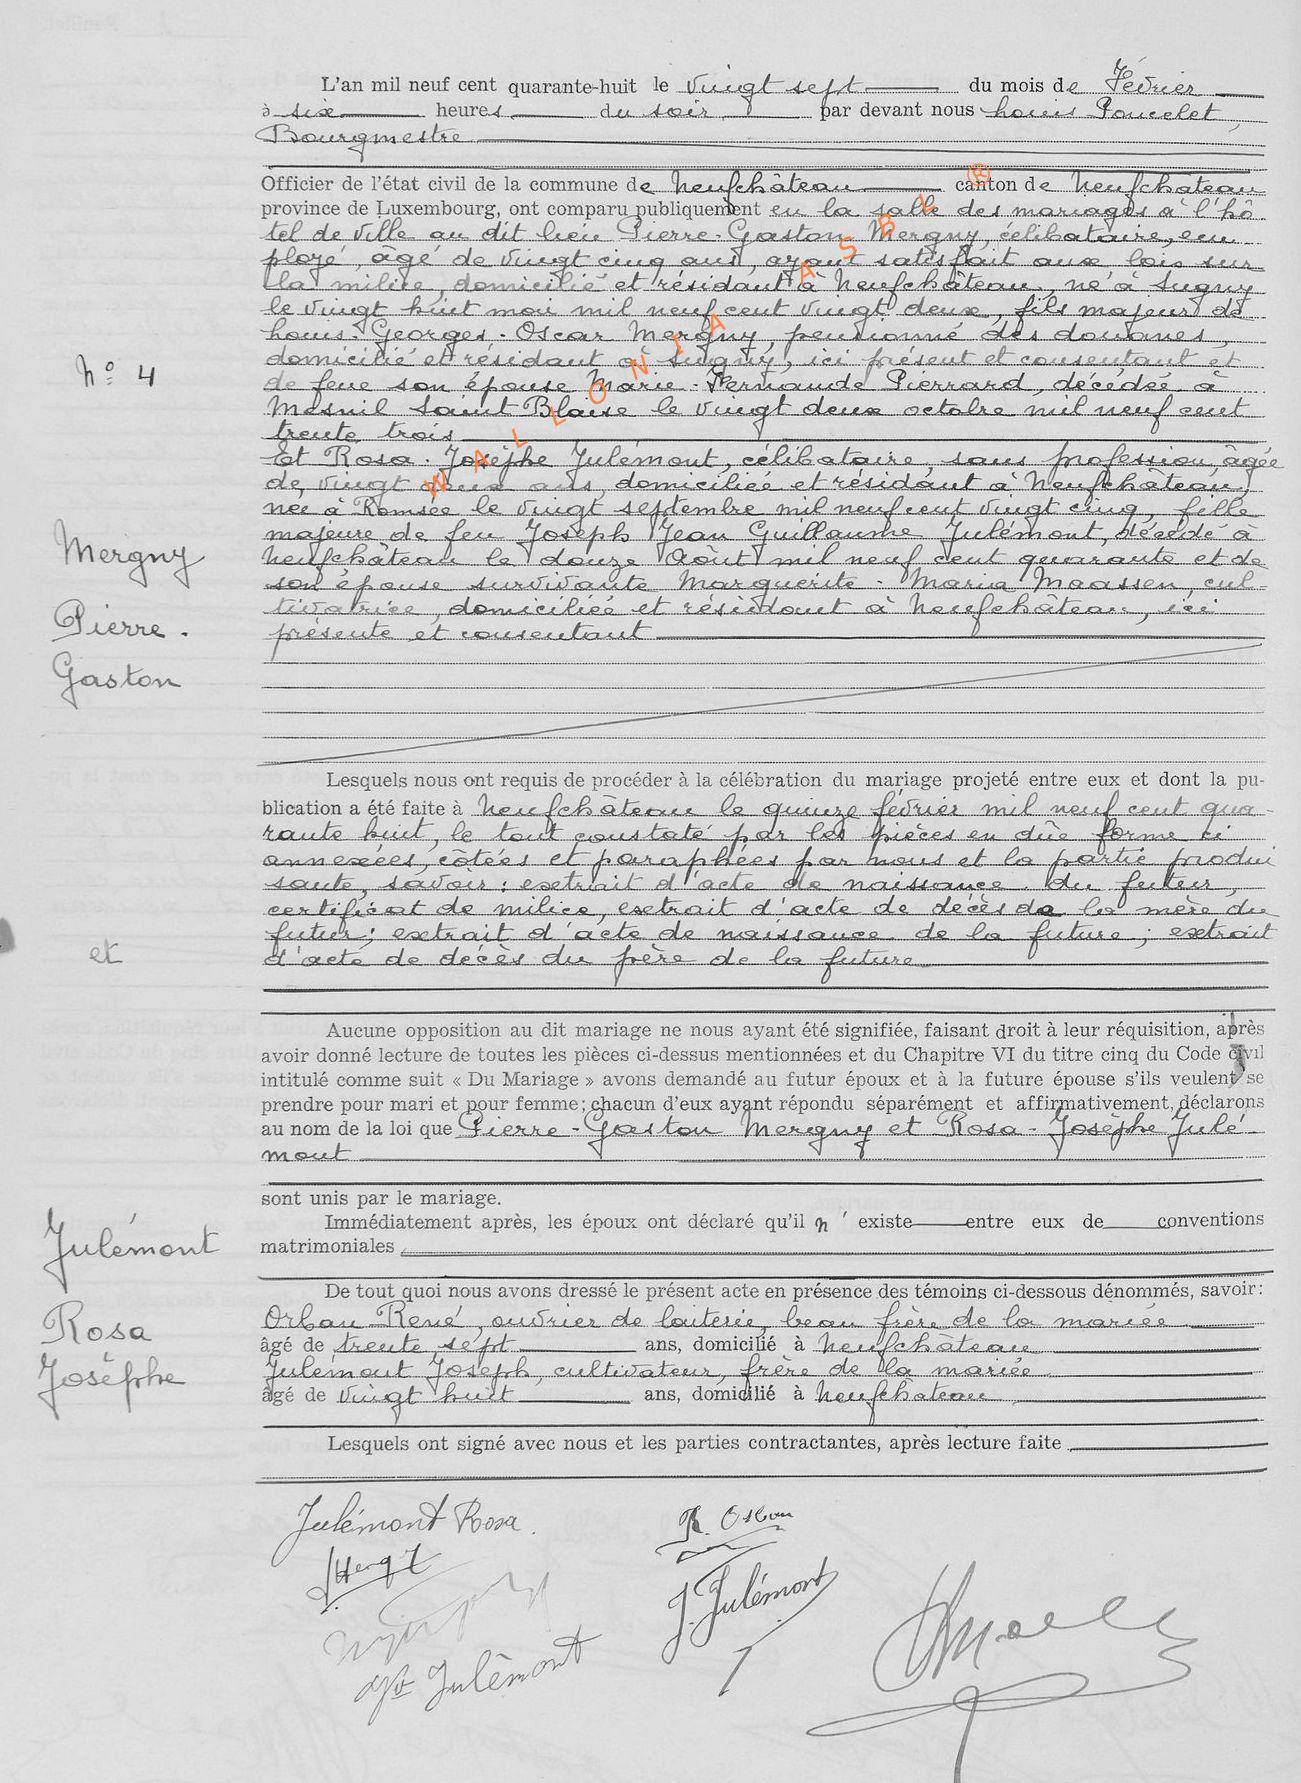 L'an mil neuf cent quarante-huit le vingt sept du mois de Février
à six heures du soir par devant nous Louis Poncelet,
Bourgmestre
Officier de l'état civil de la commune de Neufchâteau canton de Neufchâteau
province de Luxembourg, ont comparu publiquement en la salle des mariages à l'hô
tel de ville au dit lieu Pierre-Gaston Mergny, célibataire, em
ployé, âgé de vingt cinq ans, ayant satisfait aux lois sur
la milice, domicilié et résidant à Neufchâteau, né à Sugny
le vingt huit mai mil neuf cent vingt deux, fils majeur de
Louis-Georges-Oscar Mergny, pensionné des douanes,
domicilié et résidant à Sugny, ici présent et consentant et
N° 4
de feue son épouse Marie-Fernande Pierrard, décédée à
Mesnil Saint Blaise le vingt deux octobre mil neuf cent
trente trois
Et Rosa-Josèphe Julémont, célibataire, sans profession, âgée
de vingt deux ans, domiciliée et résidant à Neufchâteau,
née à Romsée le vingt septembre mil neuf cent vingt cinq, fille
majeure de feu Joseph Jean Guillaume Julémont, décédé à
Neufchâteau le douze Août mil neuf cent quarante et de
son épouse survivante Marguerite-Maria Maassen, cul-
tivatrice, domiciliée et résidant à Neufchâteau, ici
présente et consentant
Mergny
Pierre-
Gaston
Lesquels nous ont requis de procéder à la célébration du mariage projeté entre eux et dont la pu-
blication a été faite à Neufchâteau le quinze février mil neuf cent qua-
rante huit, le tout constaté par les pièces en dûe forme ci
annexées, côtées et paraphées par nous et la partie produi
sante, savoir: extrait d'acte de naissance du futur,
certificat de milice, extrait d'acte de décès de la mère du
futur; extrait d'acte de naissance de la future; extrait
d'acte de décès du père de la future
et
Aucune opposition au dit mariage ne nous ayant été signifiée, faisant droit à leur réquisition, après
avoir donné lecture de toutes les pièces ci-dessus mentionnées et du Chapitre VI du titre cinq du Code civil
intitulé comme suit « Du Mariage » avons demandé au futur époux et à la future épouse s'ils veulent se
prendre pour mari et pour femme; chacun d'eux ayant répondu séparément et affirmativement, déclarons
au nom de la loi que Pierre-Gaston Mergny et Rosa-Josèphe Julé-
mont
sont unis par le mariage.
Immédiatement après, les époux ont déclaré qu'il n'existe entre eux de conventions
matrimoniales
Julémont
Rosa
Josèphe
De tout quoi nous avons dressé le présent acte en présence des témoins ci-dessous dénommés, savoir:
Orban René, ouvrier de laiterie, beau frère de la mariée
âgé de trente sept ans, domicilié à Neufchâteau
Julémont Joseph, cultivateur, frère de la mariée
âgé de vingt huit ans, domicilié à Neufchâteau
Lesquels ont signé avec nous et les parties contractantes, après lecture faite
Julémont Rosa.
R. Orban
J. Julémont
Julémont
WALLONIA ASBL ®